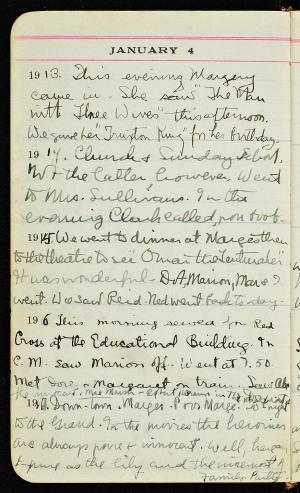 JANUARY 4
1913. This evening Margery
came in. She saw "The Man
with Three Wives" this afternoon.
We gave her "Truxton King" for her birthday.
1914. Church & Sunday School.
Not the latter however. Went
to Mrs. Sullivans. In the
evening Clark called, pon
1915 We went to dinner at Marge's then
to the theatre to see "Omar the Tentmaker"
It was wonderful - D.A, Marion, Mar & I
went. We saw Reid. Ned went back to-day.
1916 This morning sewed for Red
Cross at the Educational Building. In
P.M. saw Marion off. Went at 7.50
Met Dore, Margaret on train. Saw
191 Down-town. Marge. Poor Marge. To-night
to the Grand. In the movies the heroines
are always pure & innocent. Well, here
& pure as the lily and the
Family Party